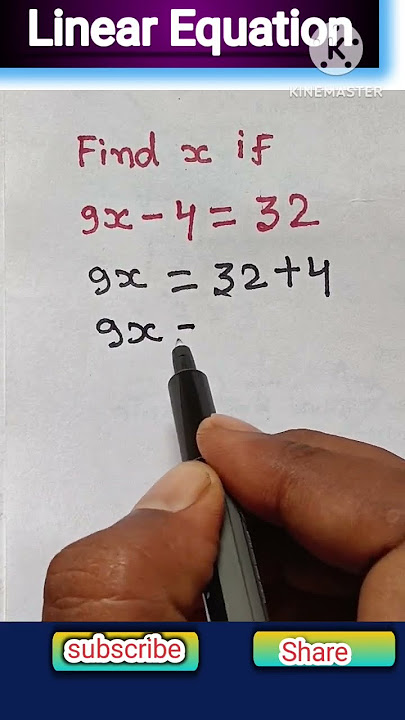 Linear Equation
K
KINEMASTER
Find x if
9x - 4 = 32
9x = 32 + 4
9x -
subscribe
Share